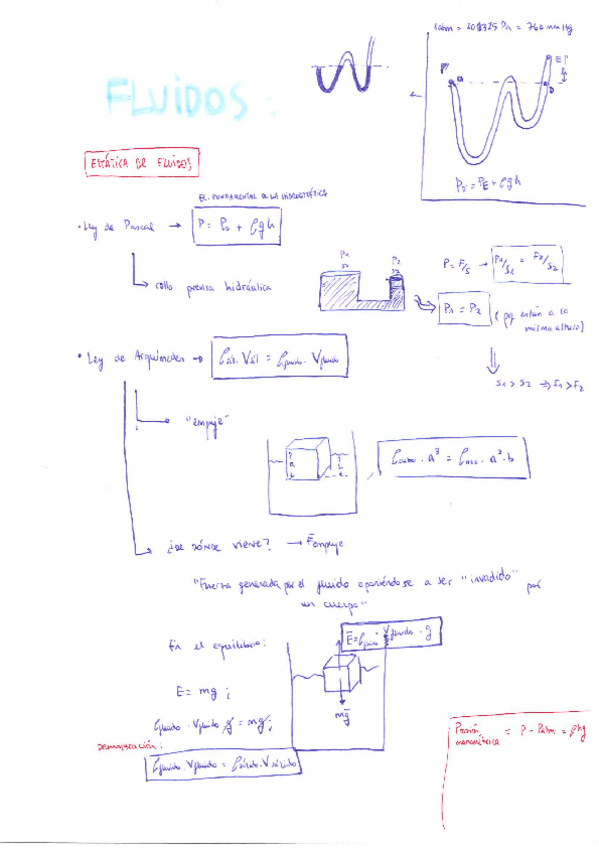 1atm = 101325 Pa = 760 mmHg
FLUIDOS:
E
D
P₀ = P_E + ρgh
ESTÁTICA DE FLUIDOS
EC. FUNDAMENTAL DE LA HIDROSTÁTICA
· Ley de Pascal → P = P₀ + ρgh
rollo prensa hidráulica
P₁ P₂
S₁ S₂
P = F/S → F₁/S₁ = F₂/S₂
P₁ = P₂ (pq están a la misma altura)
S₁ > S₂ ⇒ F₁ > F₂
· Ley de Arquímedes → ρsól. Vsól = ρfluido. Vfluido
"empuje"
a b
ρcubo · a³ = ρH₂O · a² · b
¿DE DÓNDE VIENE? → Fempuje
"Fuerza generada por el fluido oponiéndose a ser "invadido" por
un cuerpo"
En el equilibrio:
E = ρfluido · Vfluido · g
E = mg ;
mg
ρfluido · Vfluido g = mg ;
DEMOSTRACIÓN:
ρfluido · Vfluido = ρsólido · Vsólido
Presión manométrica = P - Patm = ρhg